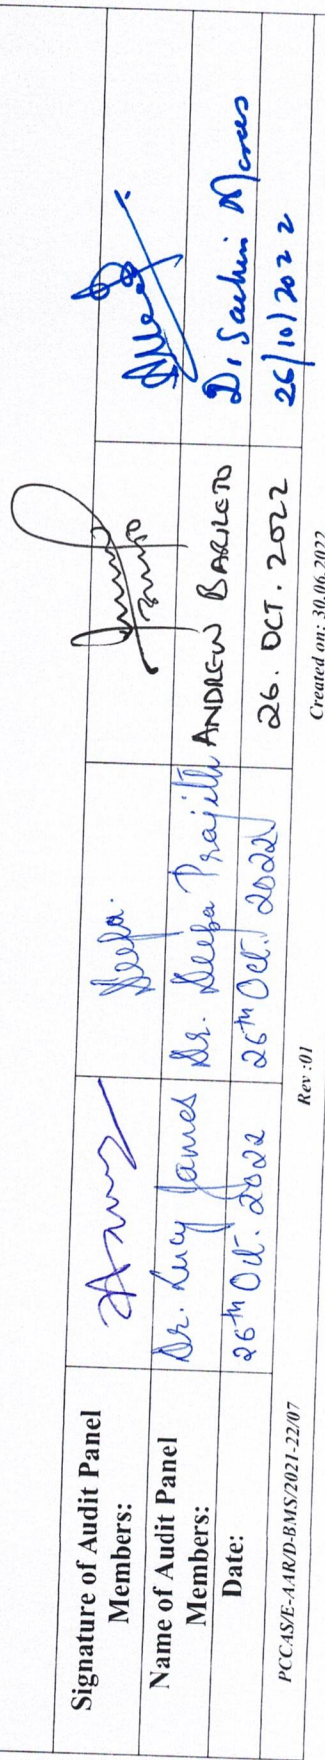 Signature of Audit Panel Members: Deepa.
Name of Audit Panel Members: Dr. Lucy James Dr. Deepa Prajith ANDREW BARRETO Dr Sachin Moraes
Date: 26th Oct. 2022 26th Oct. 2022 26. OCT. 2022 26/10/2022
PCCAS/E-AAR/D-BMS/2021-22/07 Rev :01 Created on: 30.06.2022